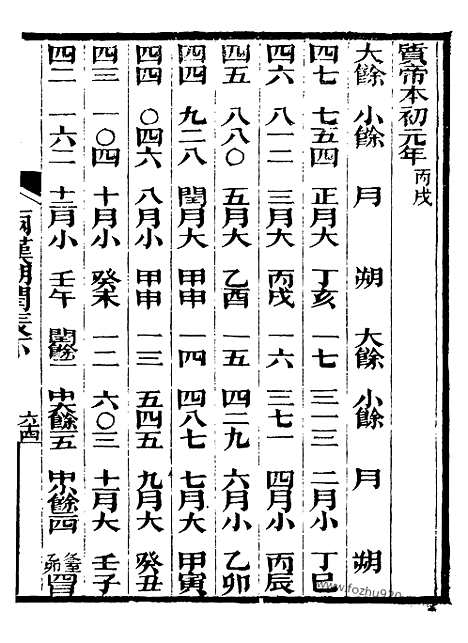 質帝本初元年丙戌
大餘 小餘 月 朔 大餘 小餘 月 朔
四七 七五四 正月大 丁亥 一七 三一三 二月小 丁巳
四六 八一二 三月大 丙戌 一六 三七一 四月小 丙辰
四五 八八〇 五月大 乙酉 一五 四二九 六月小 乙卯
四四 九二八 閏月大 甲申 一四 四八七 七月大 甲寅
四四 〇四六 八月小 甲申 一三 五四五 九月大 癸丑
四三 一〇四 十月小 癸未 一二 六〇三 十一月大 壬子
四二 一六二 十二月小 壬午 閏餘一 中大餘五 中小餘四
www.fozhu920